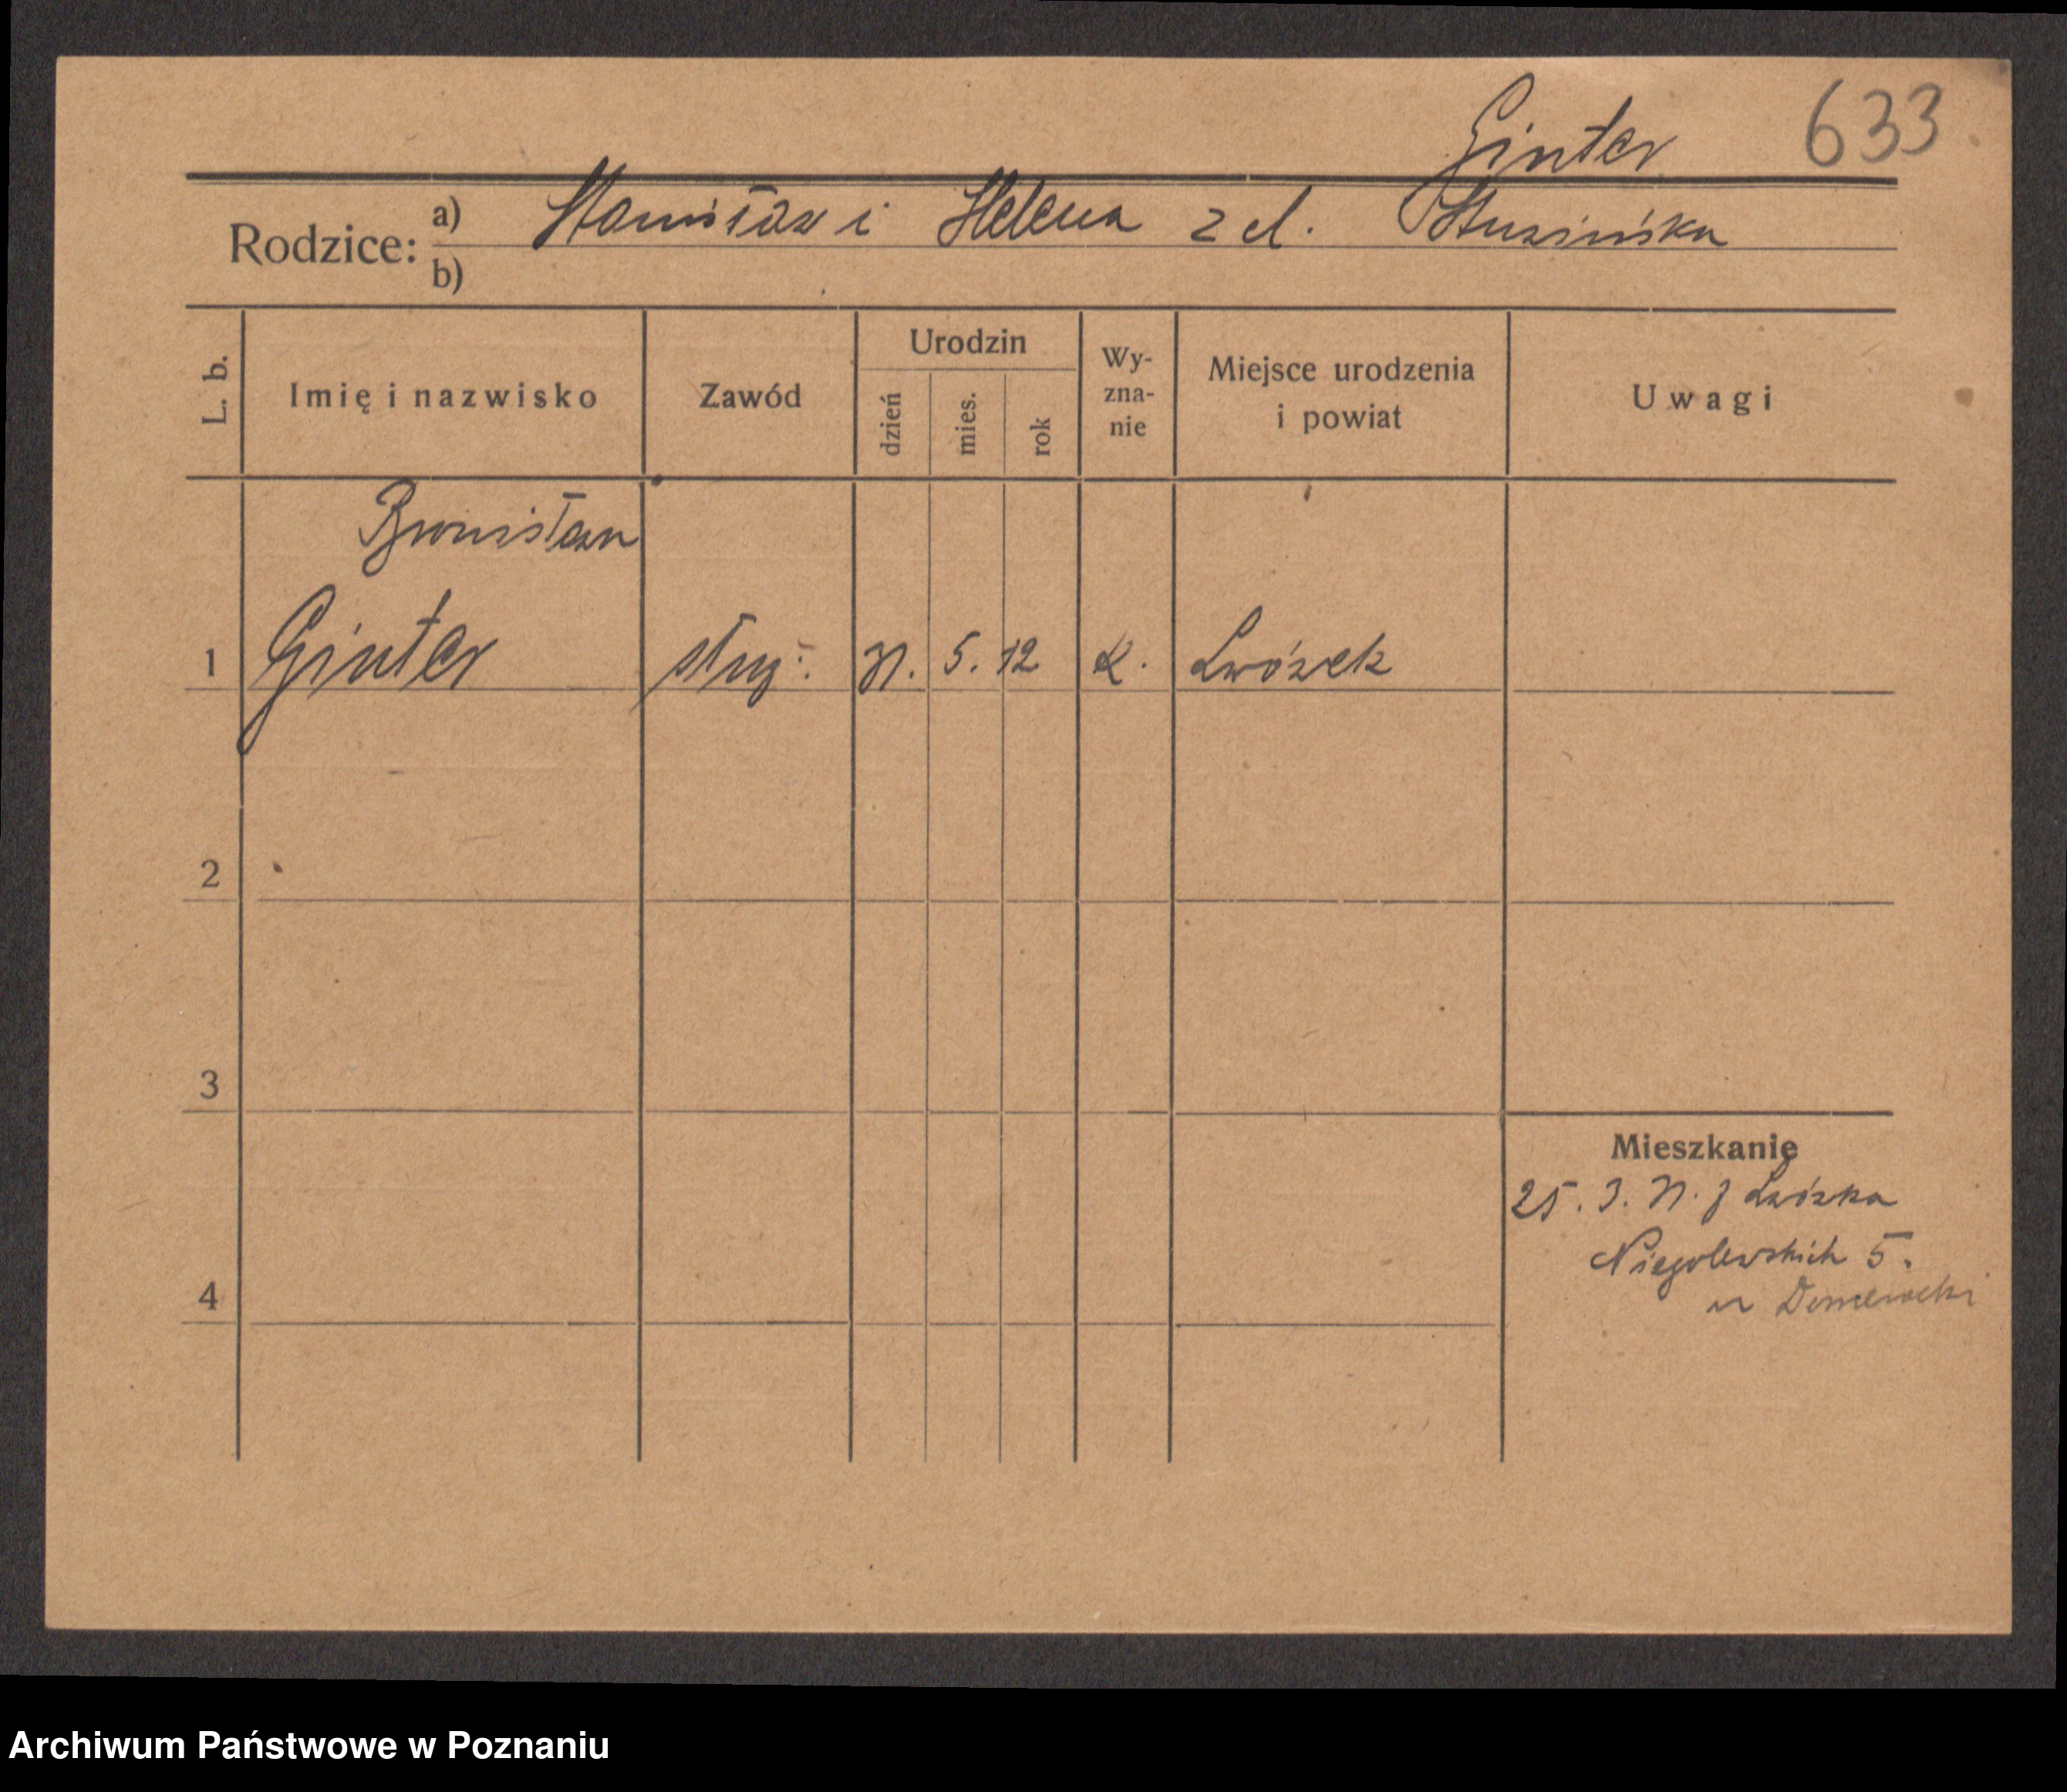 Ginter 633
Rodzice: a) Stanisław i Helena z d. Studzińska
b)
L. b. Imię i nazwisko Zawód Urodzin dzień mies. rok Wy-zna-nie Miejsce urodzenia i powiat Uwagi
Bronisław
1 Ginter służ. 31. 5. 12 k. Lwówek
2
3
Mieszkanie
25. 3. 31. z Lwówka
Niegolewskich 5.
4
u
Archiwum Państwowe w Poznaniu